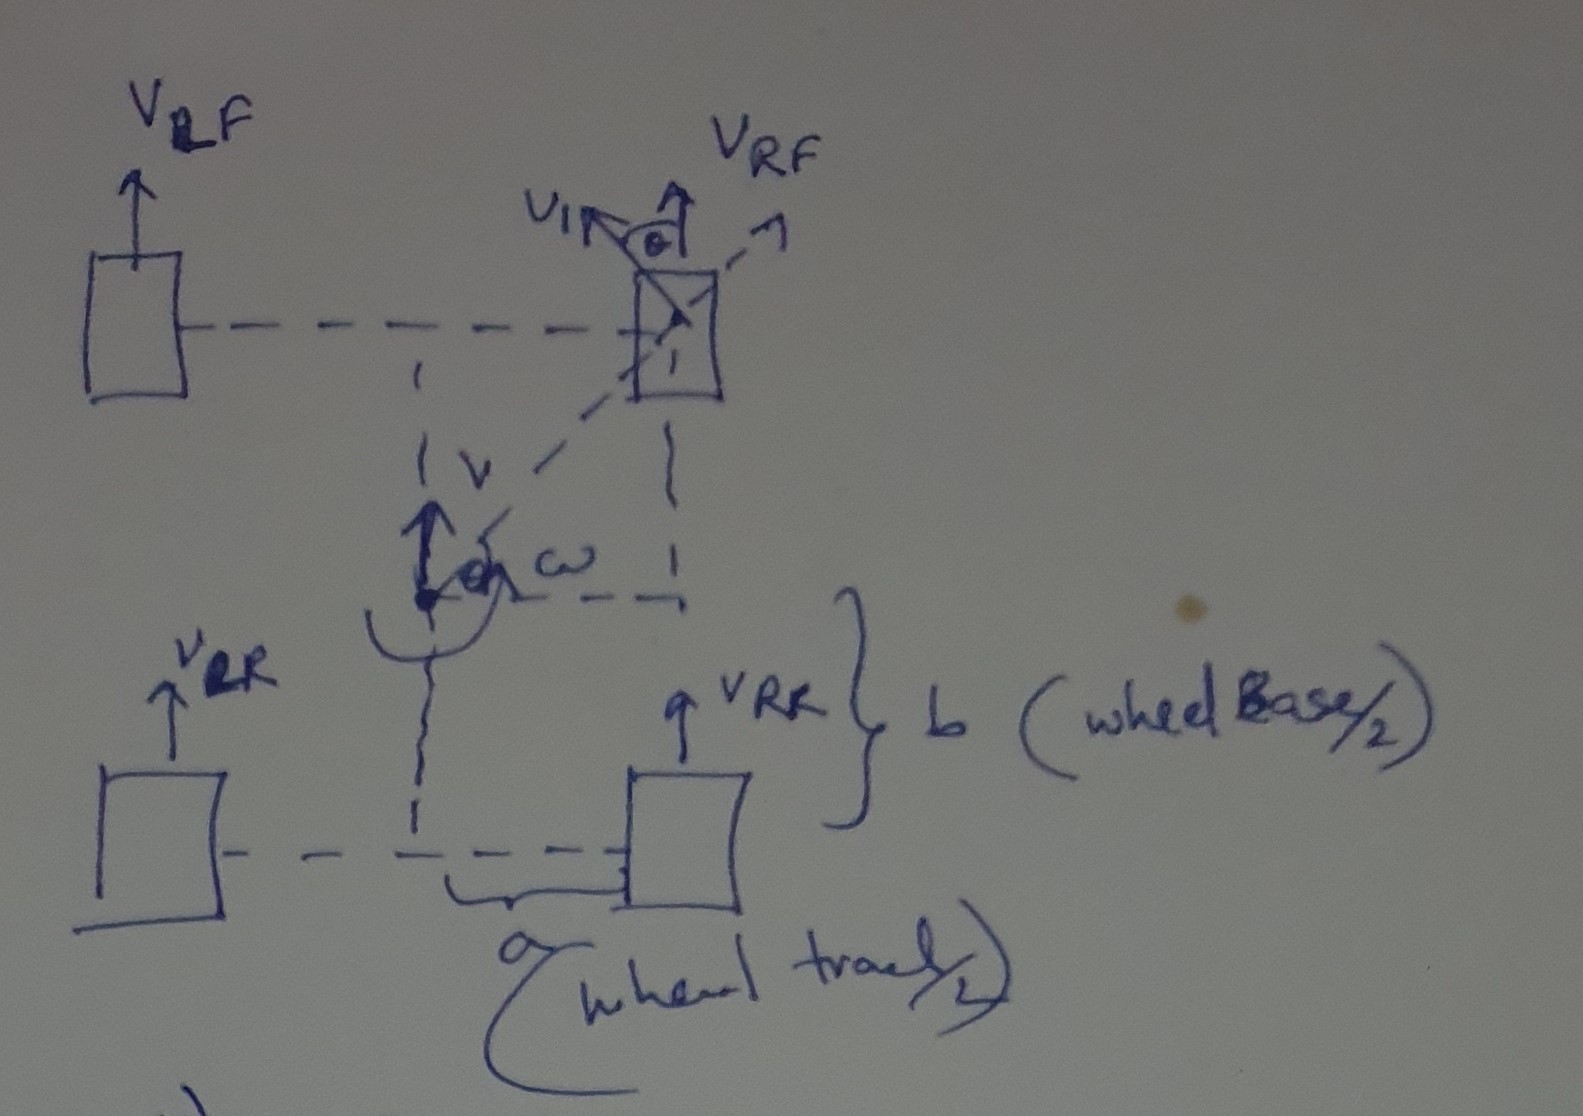 VLF
VRF
V1
θ
V
θ
ω
VLR
VRR
b (wheel Base/2)
a
(wheel track/2)